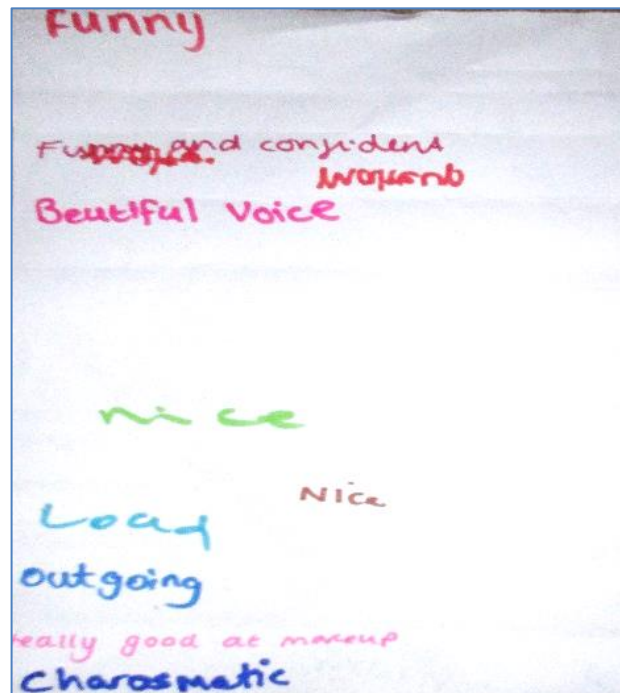 Funny
Funny and confident
Beutiful Voice
nice
Nice
Load
outgoing
really good at makeup
Charosmatic